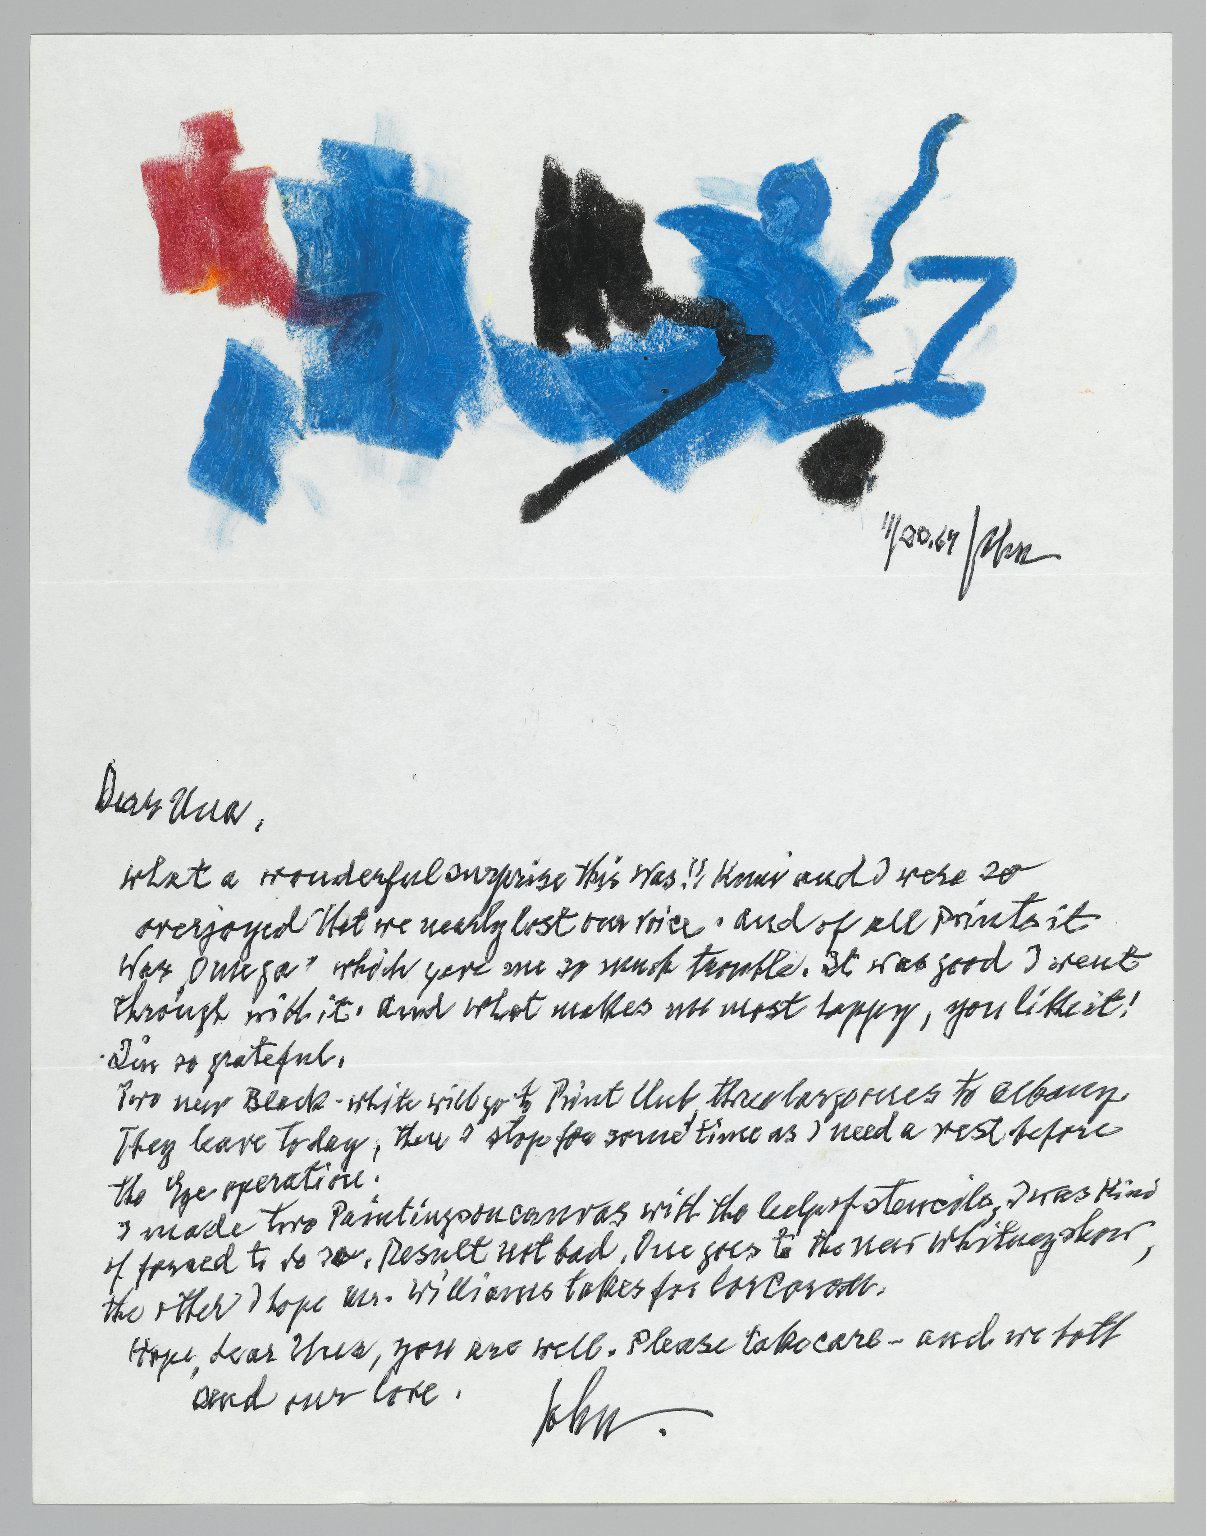 11/20.64 / John
Dear Una,
what a wonderful surprise this was!! Knui and I were so
overjoyed that we nearly lost our voice. And of all Prints it
was "Omega" which gave me so much trouble. It was good I went
through with it. And what makes me most happy, you like it!
I'm so grateful.
Two new Black-white will go to Print Club, three large ones to Albany.
They leave today, then I stop for some time as I need a rest before
the Eye operation.
I made two Paintings on canvas with the help of stencils, I was Kind
of forced to do so. Result not bad. One goes to the new Whitney show,
the other I hope Mr. Williams takes for Corcoran.
Hope, dear Una, you are well. Please take care - and we both
send our love.
John.